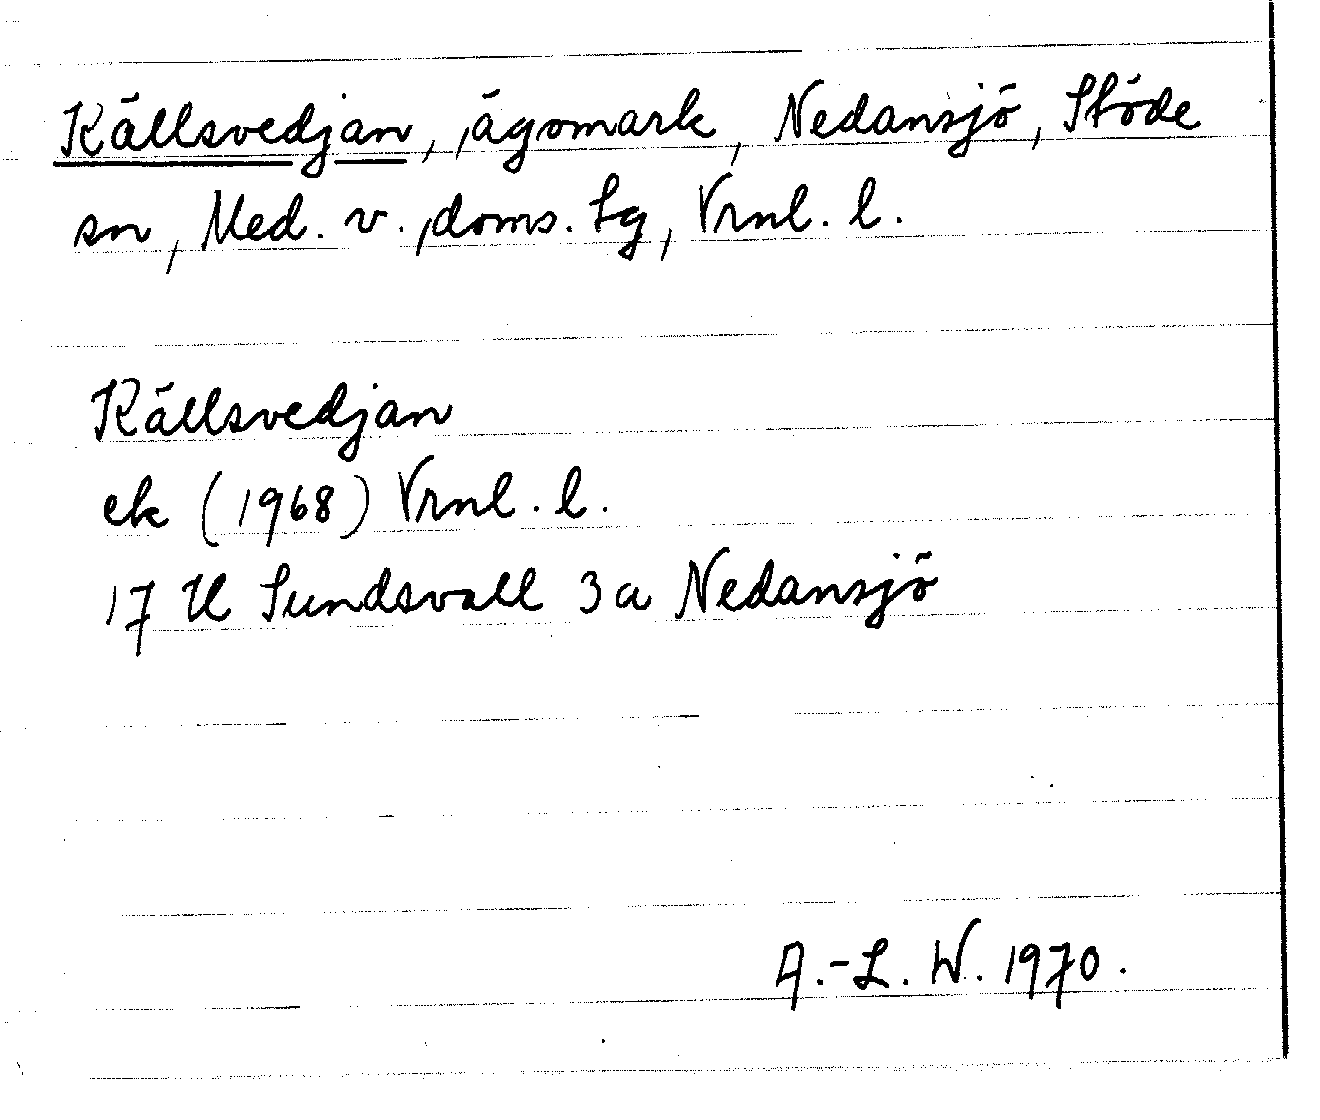 Källsvedjan, ägomark, Nedansjö, Stöde
sn, Med. v. doms. lg, Vrnl. l.
Källsvedjan
ek (1968) Vrnl. l.
17 H Sundsvall 3 a Nedansjö
A.-L. W. 1970.